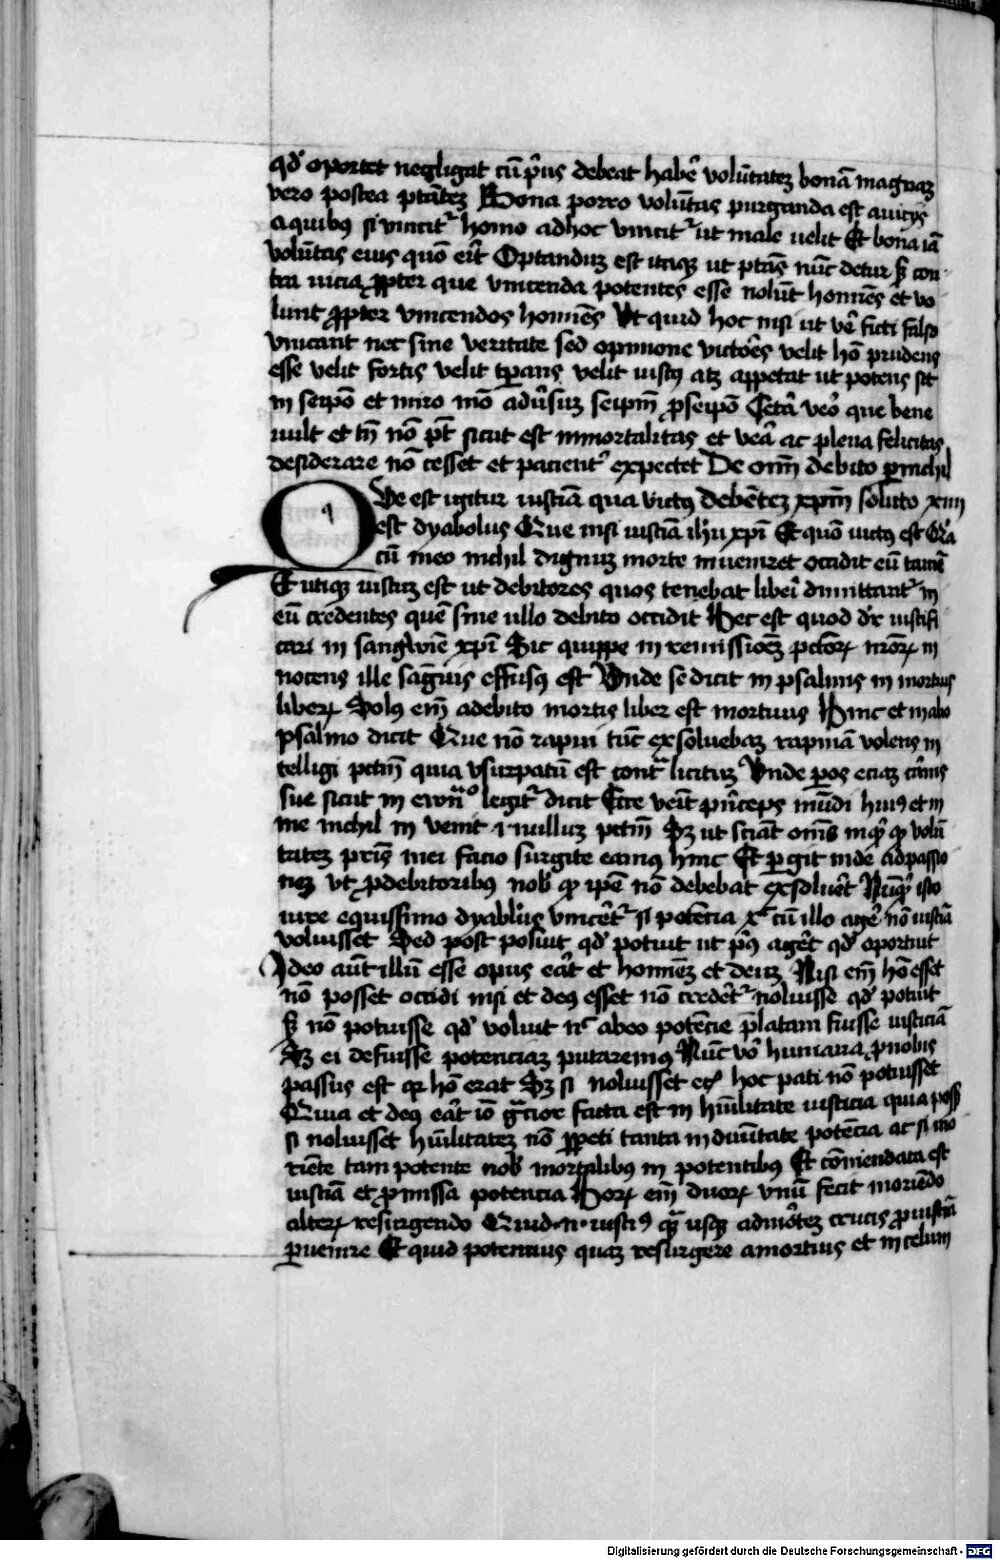 qd' oportet negligat cū p̄us debeat habe᷑ volūtatez bonā magnaz
vero postea ptātez Bona porro volūtas purganda est a vicijs
a quibus si vincit᷑ homo ad hoc vincit᷑ ut male velit Et bona iā
volūtas eius quō erit Optandum est itaqz ut ptās nūc detur sz con
tra uicia ꝓpter que vincenda potentes esse nolūt homīes et vo
lunt ꝓpter vincendos homīes Ut quid hoc nisi ut ve᷑ ficti falso
vincant nec sine veritate sed opinione victōēs velit hō prudens
esse velit fortis velit tꝑans velit iustus atz appetat ut potens sit
in seipō et miro mō adūsuz seipm̄ ꝓ seipō Cetā veō que bene
uult et tn̄ nō pt̄ sicut est inmortalitas et veā ac plena felicitas
desiderare nō cesset et pacient᷑ expectet De om̄i debito ꝑ nichil
Que est igitur iustiā qua victus debētez xpm̄ soluto xiiij
est dyabolus Que nisi iustiā ihū xpī Et quō uictus est Qr̄a
cū in eo nichil dignum morte inueniret occidit eū tamē
Et utiqz iustuz est ut debitores quos tenebat liberī dimittant᷑ in
eū credentes quē sine ullo debito occidit Hec est quod dr̄ iustifi
cari in sangwīe xpī Sic quippe in remissiōēz pctōrꝝ nrōrꝝ in
nocens ille sāguis effusus est Unde se dicit in psalmis in mortuis
liberꝝ Solus em̄ a debito mortis liber est mortuus Hinc et in alio
psalmo dicit Que nō rapui tūc exsoluebaz rapinā volens in
telligi pctm̄ quia vsurpatū est contra licituz Unde ꝑ os eciaz carnis
sue sicut in ewn̄o legit᷑ dicit Ecce venit pn̄ceps mūdi huiꝰ et in
me nichil inuenit .i. nulluz pctm̄ Sz ut sciāt om̄s inqt qꝛ volū
tatez pr̄is mei facio surgite eamus hinc Et ꝑgit inde ad passio
nez vt ꝓ debitoribus nob̄ qd ipē nō debebat exsolu̅et Nūqd isto
iure equissimo dyablus vincēt᷑ si potencia x̄ cū illo age᷑ nō iustiā
voluisset Sed post posuit qd' potuit ut p̄us agēt qd' oportuit
Ideo aūt illū esse opus eāt et hominez et deuz Nisi em̄ hō esset
nō posset occidi nisi et deus esset nō credēt᷑ noluisse qd' potuit
sz nō potuisse qd' voluit nc̄ ab eo potēcie p̄latam fuisse iusticiā
Sz ei defuisse potenciaz putaremus Nūc vō humana ꝓ nobis
passus est qꝛ hō erat Sz si noluisset eciā hoc pati nō potuisset
Quia et deus eāt iō grācior facta est in hūilitate iusticia quia posset
si noluisset hūilitatez nō ꝑpeti tanta in diuītate potēcia ac si mo
riēte tam potente nob̄ mortalibus in potentibus Et cōmendata est
iustiā et ꝓmissa potencia Horꝝ em̄ duorꝝ vnū fecit moriēdo
alterꝝ resurgendo Quid .n. iustiꝰ quā usqz ad mōtez crucis ꝓ iustiā
ꝑuenire Et quid potentius quaz resurgere a mortuis et in celum
Digitalisierung gefördert durch die Deutsche Forschungsgemeinschaft - DFG